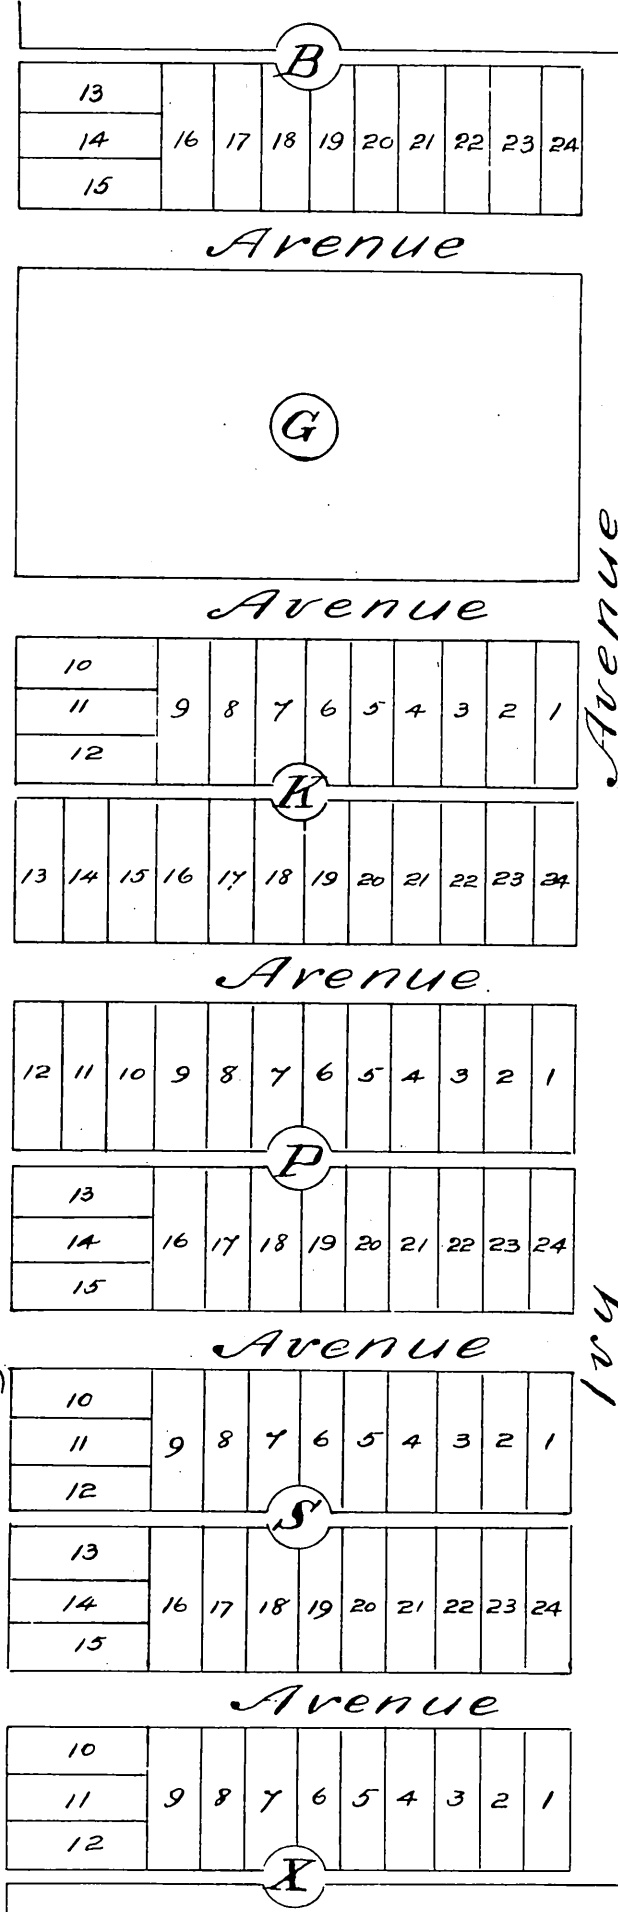 B
13
14
15
16 17 18 19 20 21 22 23 24
Avenue
G
Avenue
10
11
12
9 8 7 6 5 4 3 2 1
K
13 14 15 16 17 18 19 20 21 22 23 24
Avenue
12 11 10 9 8 7 6 5 4 3 2 1
P
13
14
15
16 17 18 19 20 21 22 23 24
Avenue
10
11
12
9 8 7 6 5 4 3 2 1
S
13
14
15
16 17 18 19 20 21 22 23 24
Avenue
10
11
12
9 8 7 6 5 4 3 2 1
X
Ivy Avenue